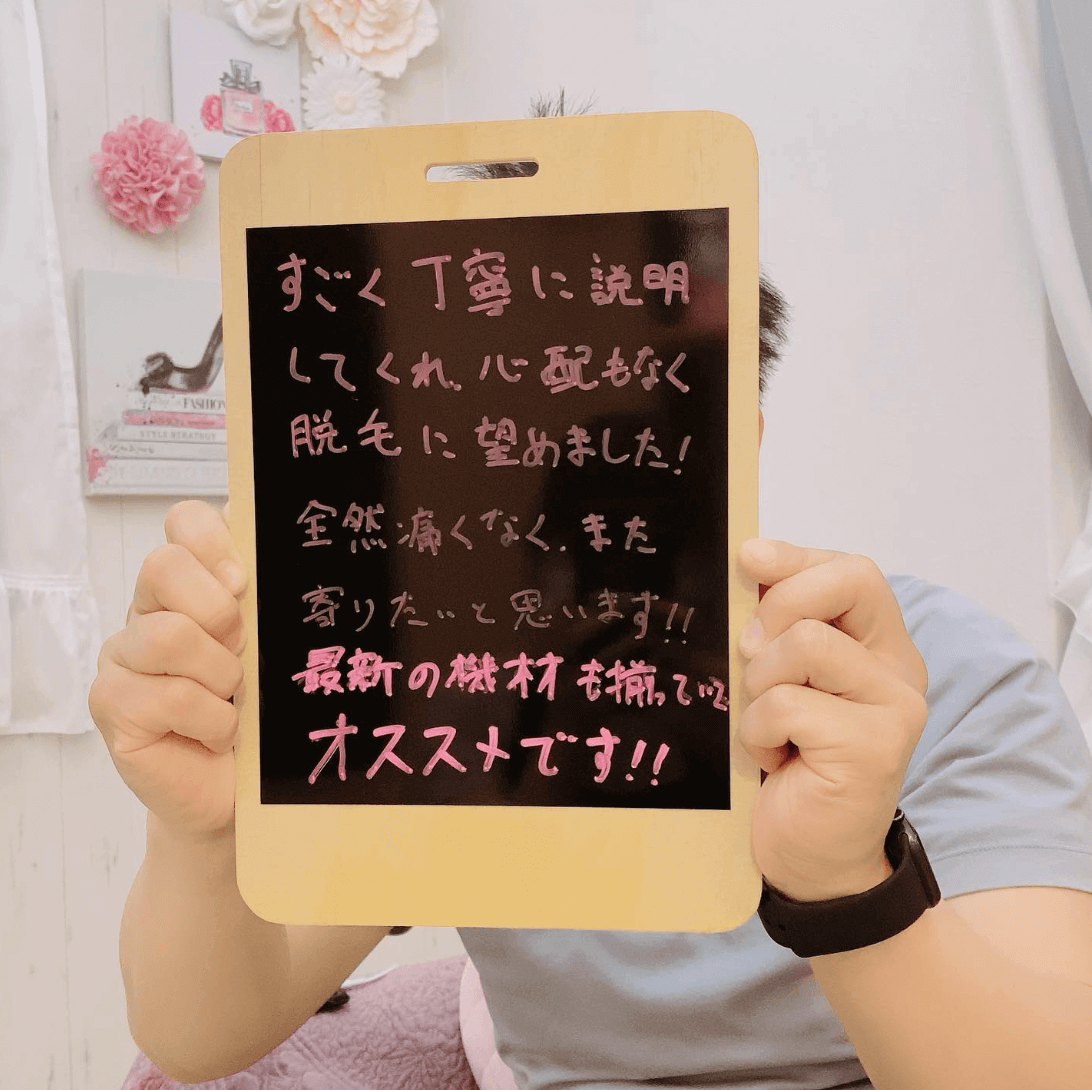 FASHION
STYLE STRATEGY
すごく丁寧に説明
してくれ、心配もなく
脱毛に望めました!
全然痛くなく、また
寄りたいと思います!!
最新の機材も揃っていて
オススメです!!